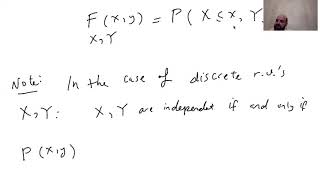 F (x,y) = P ( X ≤ x, Y
X,Y
Note: In the case of discrete r.v.'s
X,Y: X,Y are independent if and only if
P (x,y)